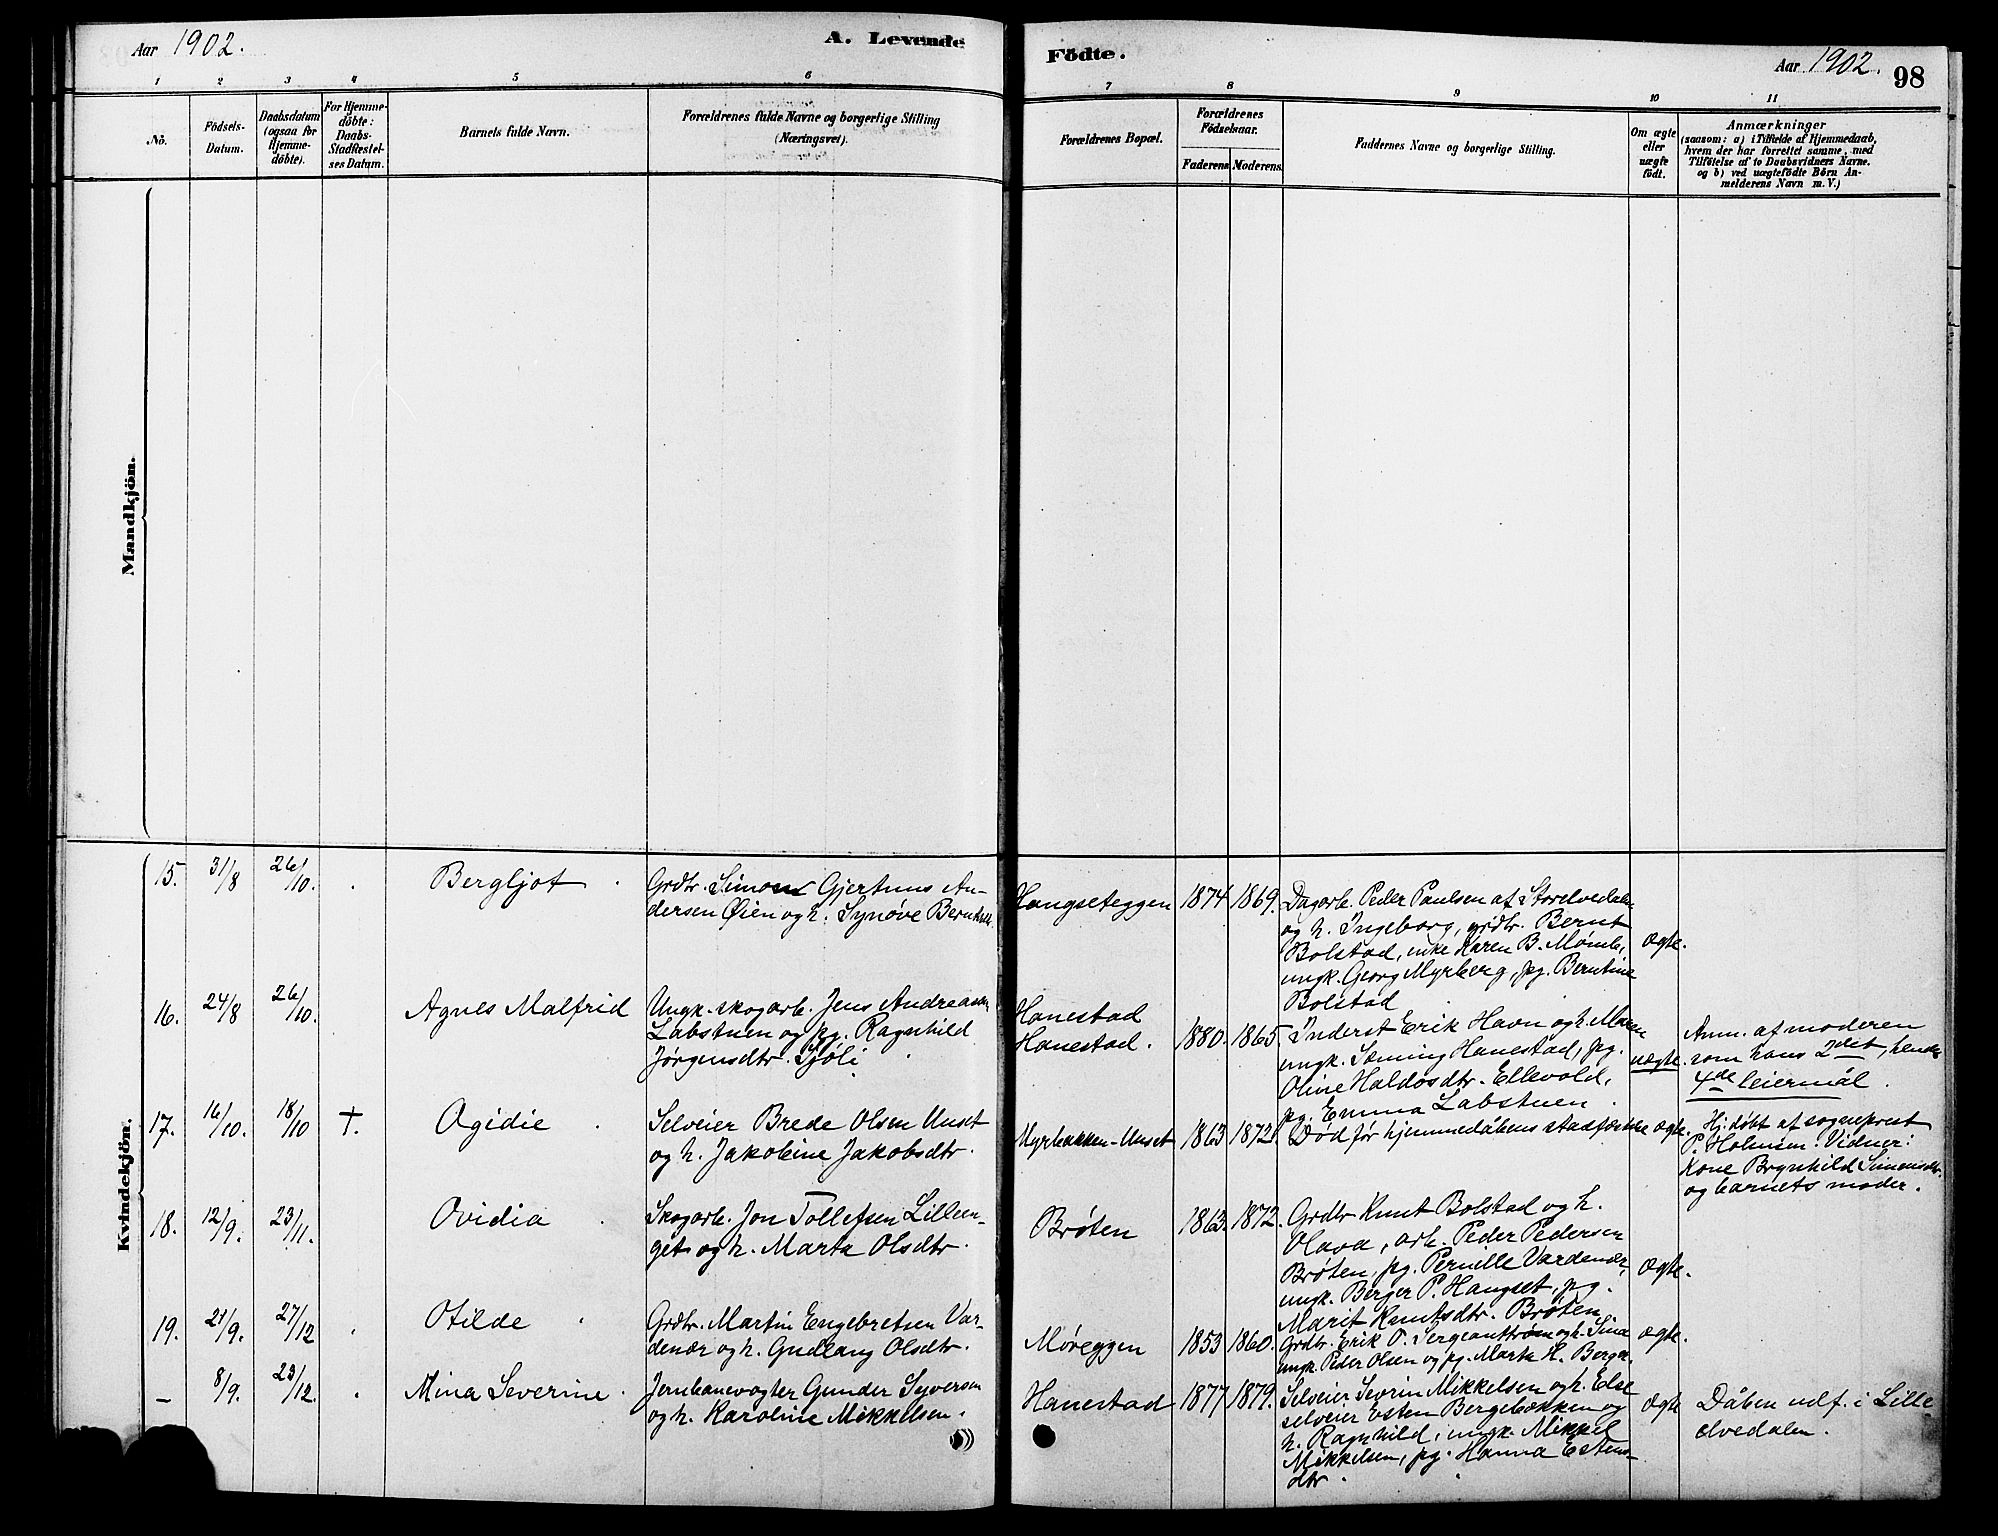 Aar 1902.
A. Levende
Födte.
Aar 1902.
98
1 2 3 4 5 6
7 8 9 10 11
No.
Födsels-
Datum.
Daabsdatum
(ogsaa for
Hjemme-
döbte).
For Hjemme-
döbte:
Daabs-
Stadfæstel-
ses Datum.
Barnets fulde Navn.
Forældrenes fulde Navne og borgerlige Stilling
(Næringsvei).
Forældrenes Bopæl.
Forældrenes
Födselsaar.
Faderens Moderens.
Faddernes Navne og borgerlige Stilling.
Om ægte
eller
uægte
födt.
Anmærkninger
(saasom: a) i Tilfælde af Hjemmedaab,
hvem der har forrettet samme, med
Tilföielse af to Daabsvidners Navne.
og b) ved uægtefödte Börn An-
melderens Navn m. V.)
Mandkjön.
Kvindekjön.
15.
31/8
26/10.
Bergljot
Grdbr. Simon Gjertinus An-
dersen Øien og h. Synøve Berntsdtr.
Hangseteggen
1874
1869.
Dagarb. Peder Paulsen af Storelvedalen
og h. Ingeborg, grdbr. Bernt
Bolstad, enke Karen B.
ungk. Georg Myrberg, pg. Berntine
Bolstad
ægte.
16.
24/8
26/10.
Agnes Malfrid
Ungk. skogarb. Jens Andreassen
Labstuen og pg. Ragnhild
Jørgensdtr. Sjøli
Hanestad
Hanestad.
1880.
1865
Inderst Erik Havn og h. Maren
ungk. Sæming Hanestad, pg.
Oline Haldosdtr. Ellevold,
pg. Emma Labstuen.
uægte.
Anm. af moderen
som hans 2det, hendes
4de leiermål.
17.
16/10.
18/10
†.
Agidie
Selveier Brede Olsen Unset
og h. Jakobine Jakobsdtr.
Myrbakken-Unset
1863
1872.
Død før hjemmedåbens stadfæstelse
ægte.
Hj. døbt af sogneprest
P. Holmsen. Vidner:
Kone Brynhild Simensdtr.
og barnets moder.
18.
12/9.
23/11.
Ovidia
Skogarb. Jon Tollefsen Lilleen-
get og h. Marta Olsdtr.
Brøten
1863.
1872.
Grdbr Knut Bolstad og h.
Olava, arb. Peder Pedersen
Brøten, pg. Pernille Vardenær,
ungk. Berger P. Hangset, pg.
Marit Knutsdtr. Brøten
ægte.
19.
21/9.
27/12
Otilde
Grdbr. Martin Engebretsen Var-
denær og h. Gudlang Olsdtr.
Møreggen
1853
1860.
Grdbr. Erik T. Sergeantrøm og h. Sina
ungk. Peder Olsen og pg. Marta H. Bergk.
ægte.
–
8/9.
23/12.
Mina Severine.
Jernbanevogter Gunder Syversen
og h. Karoline Mikkelsen.
Hanestad
1877
1879.
Selveier Sevrin Mikkelsen og h. Else
selveier Esten Bergebækken og
h. Ragnhild, ungk. Mikkel
Mikkelsen, pg. Hanna Estens-
dtr.
ægte
Dåben udf. i Lille
elvedalen.